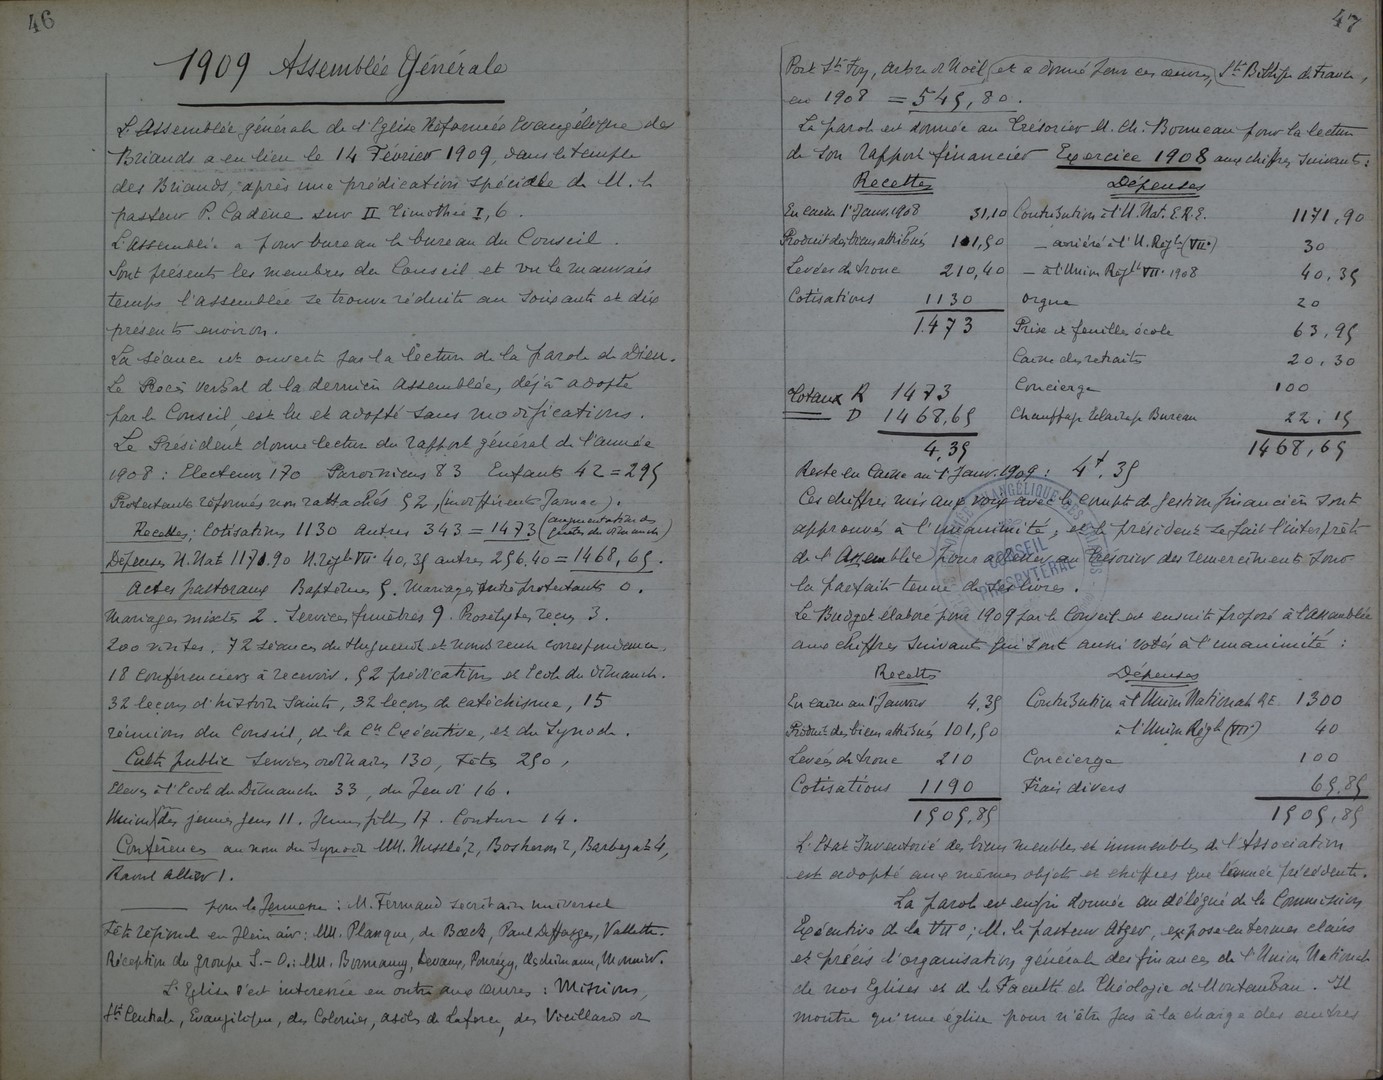 46
1909 Assemblée Générale
L'Assemblée générale de l'Eglise Réformée Evangélique des
Briands a eu lieu le 14 Février 1909, dans le temple
des Briands, après une prédication spéciale de M. le
pasteur P. Cadène sur II Timothée I, 6.
L'Assemblée a pour bureau le bureau du Conseil.
Sont présents les membres du Conseil et vu le mauvais
temps l'assemblée se trouve réduite au soixante et dix
présents environ.
La séance est ouverte par la lecture de la parole de Dieu.
Le Procès verbal de la dernière assemblée, déjà adopté
par le Conseil, est lu et adopté sans modifications.
Le Président donne lecture du rapport général de l'année
1908 : Electeurs 170 Paroissiens 83 Enfants 42 = 295
Protestants réformés non rattachés 52, (indifférents Jarnac).
Recettes : Cotisations 1130 autres 343 = 1473 (augmentation des
quêtes du dimanche)
Dépenses U. Nat 1171.90 U. régle VIIe 40,35 autres 256.40 = 1468,65.
Actes pastoraux Baptêmes 5. Mariages entre protestants 0.
Mariages mixtes 2. Services funèbres 9. Prosélytes reçus 3.
200 visites. 72 séances du Huguenot et nombreuse correspondance.
18 conférenciers à recevoir. 52 prédications et Ecole du dimanche.
32 leçons d'histoire sainte, 32 leçons de catéchisme, 15
réunions du Conseil, de la Cn Exécutive, et du Synode.
Culte public Services ordinaires 130, Fêtes 250,
Elèves à l'Ecole du Dimanche 33, du Jeudi 16.
Union des jeunes gens 11. Jeunes filles 17. Couture 14.
Conférences au nom du Synode MM. Nusslé, 2, Bosheron 2, Barbezat 4,
Raoul Allier 1.
pour la Jeunesse : M. Fermaud secrétaire universel
Fête régionale en plein air : MM. Planque, de Boeck, Paul Deffarges, Vallette.
Réception du groupe S.-O. : MM.
L'Eglise s'est intéressée en outre aux œuvres : Missions,
Sté Centrale, Evangélique, des Colonies, asiles de Laforce, des Vieillards de
47
Port Ste Foy, Arbre de Noël, (et a donné pour ces œuvres), Sté Biblique de France,
en 1908 = 545,80.
La parole est donnée au Trésorier M. Ch. Bonneau pour la lecture
de son rapport financier Exercice 1908 aux chiffres suivants :
Recettes Dépenses
En caisse 1er Janv. 1908 31,10 Contribution à l'U. Nat. E.R.E. 1171,90
Produit des biens attribués 101,50 — arriéré à l'U. Régle (VIIe) 30
Levées de tronc 210,40 — à l'Union Régle VIIe 1908 40,35
Cotisations 1130 Orgue 20
1473 Prise et feuilles école 63,95
Caisse des retraites 20.30
Totaux R 1473 Concierge 100
D 1468,65 Chauffage Eclairage Bureau 22.15
4,35 1468,65
Reste en Caisse au 1er Janv. 1909 : 4f,35
Ces chiffres mis aux voix avec le compte de gestion financière sont
approuvés à l'unanimité ; et le président se fait l'interprète
de l'Assemblée pour adresser au Trésorier des remerciements pour
la parfaite tenue de ses livres.
CONSEIL PRESBYTERAL
Le Budget élaboré pour 1909 par le Conseil est ensuite proposé à l'assemblée
aux chiffres suivants qui sont aussi votés à l'unanimité :
Recettes Dépenses
En caisse au 1er Janvier 4,35 Contribution à l'Union Nationale R.E. 1300
Produit des biens attribués 101,50 à l'Union Régle (VIIe) 40
Levées de tronc 210 Concierge 100
Cotisations 1190 Frais divers 65,85
1505,85 1505,85
L'Etat Inventorié des biens meubles et immeubles de l'Association
est adopté aux mêmes objets et chiffres que l'année précédente.
La parole est enfin donnée au délégué de la Commission
Exécutive de la VIIe ; M. le pasteur Atger, expose en termes clairs
et précis l'organisation générale des finances de l'Union Nationale
de nos Eglises et de la Faculté de Théologie de Montauban. Il
montre qu'une église pour n'être pas à la charge des autres